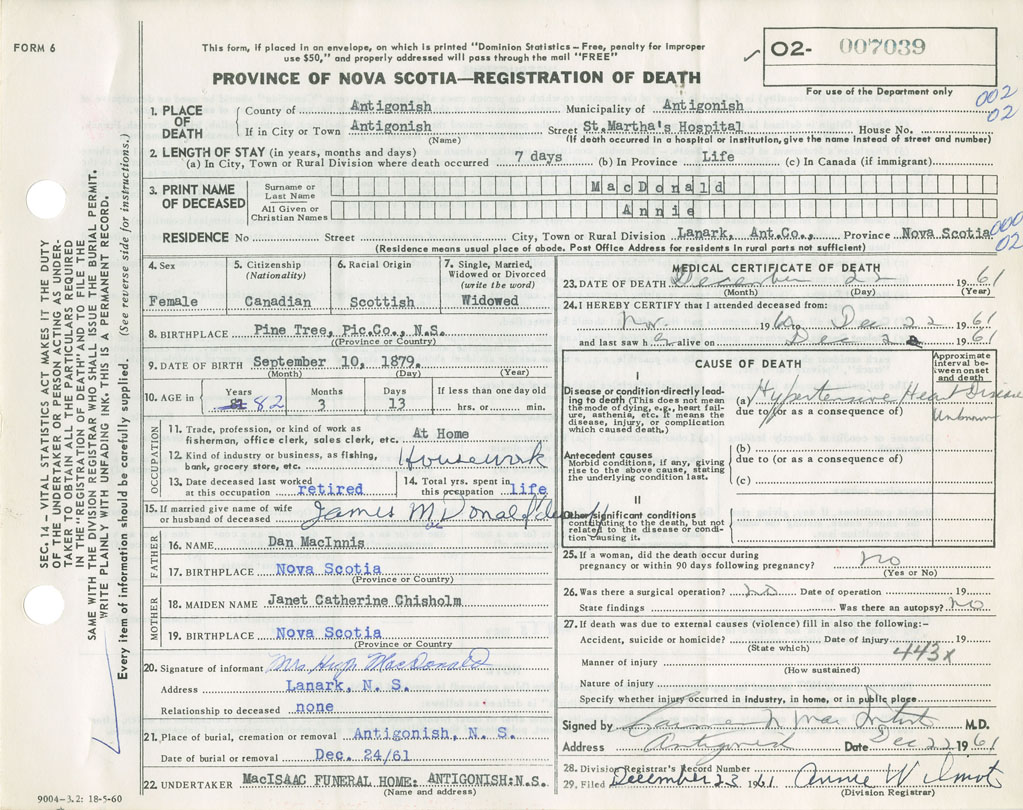 FORM 6
This form, if placed in an envelope, on which is printed "Dominion Statistics – Free, penalty for improper
use $50," and properly addressed will pass through the mail "FREE"
PROVINCE OF NOVA SCOTIA—REGISTRATION OF DEATH
02- 007039
For use of the Department only
002
02
1. PLACE OF DEATH
County of Antigonish Municipality of Antigonish
If in City or Town Antigonish Street St.Martha's Hospital House No.
(Name) (If death occurred in a hospital or institution, give the name instead of street and number)
2. LENGTH OF STAY (in years, months and days)
(a) In City, Town or Rural Division where death occurred 7 days (b) In Province Life (c) In Canada (if immigrant)
3. PRINT NAME OF DECEASED
Surname or Last Name MacDonald
All Given or Christian Names Annie
RESIDENCE No Street City, Town or Rural Division Lanark, Ant.Co., Province Nova Scotia
(Residence means usual place of abode. Post Office Address for residents in rural parts not sufficient)
000
02
4. Sex Female
5. Citizenship (Nationality) Canadian
6. Racial Origin Scottish
7. Single, Married, Widowed or Divorced (write the word) Widowed
8. BIRTHPLACE Pine Tree, Pic.Co., N.S.
(Province or Country)
9. DATE OF BIRTH September 10, 1879.
(Month) (Day) (Year)
10. AGE in Years 82 Months 3 Days 13 If less than one day old hrs. or min.
OCCUPATION
11. Trade, profession, or kind of work as
fisherman, office clerk, sales clerk, etc. At Home
12. Kind of industry or business, as fishing,
bank, grocery store, etc. Housework
13. Date deceased last worked
at this occupation retired
14. Total yrs. spent in
this occupation life
15. If married give name of wife
or husband of deceased James McDonald
FATHER
16. NAME Dan MacInnis
17. BIRTHPLACE Nova Scotia
(Province or Country)
MOTHER
18. MAIDEN NAME Janet Catherine Chisholm
19. BIRTHPLACE Nova Scotia
(Province or Country
20. Signature of informant Mrs Hugh MacDonald
Address Lanark, N. S.
Relationship to deceased none
21. Place of burial, cremation or removal Antigonish, N. S.
Date of burial or removal Dec. 24/61
22. UNDERTAKER MacISAAC FUNERAL HOME: ANTIGONISH:N.S.
(Name and address)
MEDICAL CERTIFICATE OF DEATH
23. DATE OF DEATH December 22 1961
(Month) (Day) (Year)
24. I HEREBY CERTIFY that I attended deceased from:
Nov. 1961 to Dec 22 1961
and last saw her alive on Dec 22 1961
CAUSE OF DEATH
Approximate interval between onset and death
I
Disease or condition directly leading to death (This does not mean the mode of dying, e.g., heart failure, asthenia, etc. It means the disease, injury, or complication which caused death.)
(a) Hypertensive Heart Disease
due to (or as a consequence of) Unknown
Antecedent causes
Morbid conditions, if any, giving rise to the above cause, stating the underlying condition last.
(b)
due to (or as a consequence of)
(c)
II
Other significant conditions
contributing to the death, but not related to the disease or condition causing it.
25. If a woman, did the death occur during
pregnancy or within 90 days following pregnancy? No
(Yes or No)
26. Was there a surgical operation? No Date of operation 19
State findings Was there an autopsy? No
27. If death was due to external causes (violence) fill in also the following:-
Accident, suicide or homicide? Date of injury 19
(State which)
443x
Manner of injury
(How sustained)
Nature of injury
Specify whether injury occurred in industry, in home, or in public place
Signed by M.D.
Address Antigonish Date Dec 22 1961
28. Division Registrar's Record Number
29. Filed December 23 1961 Annie Wilmot
(Division Registrar)
SEC. 14 – VITAL STATISTICS ACT MAKES IT THE DUTY
OF THE UNDERTAKER OR PERSON ACTING AS UNDER-
TAKER TO OBTAIN ALL THE PARTICULARS REQUIRED
IN THE "REGISTRATION OF DEATH" AND TO FILE THE
SAME WITH THE DIVISION REGISTRAR WHO SHALL ISSUE THE BURIAL PERMIT.
WRITE PLAINLY WITH UNFADING INK. THIS IS A PERMANENT RECORD.
Every item of information should be carefully supplied. (See reverse side for instructions.)
9004–3.2: 18-5-60